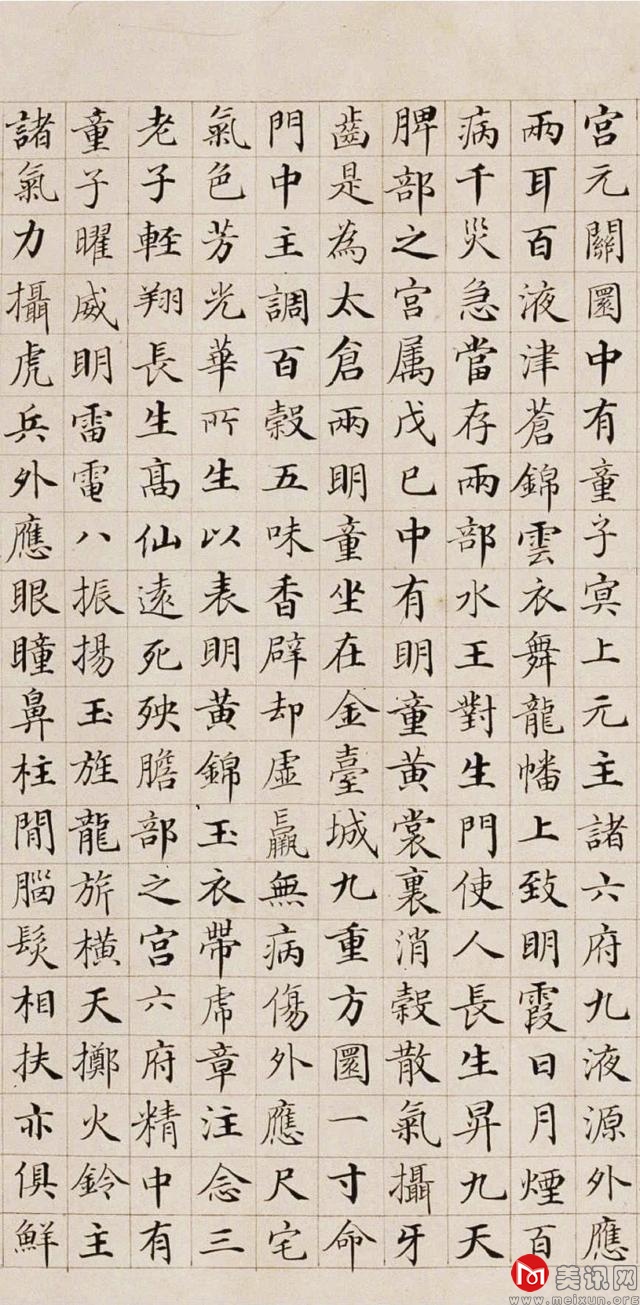 宮元關圜中有童子冥上元主諸六府九液源外應
兩耳百液津蒼錦雲衣舞龍幡上致明霞日月煙百
病千災急當存兩部水王對生門使人長生昇九天
脾部之宮属戊巳中有明童黃裳裏消穀散氣攝牙
齒是為太倉兩明童坐在金臺城九重方圜一寸命
門中主調百穀五味香辟却虛羸無病傷外應尺宅
氣色芳光華所生以表明黃錦玉衣帶虎章注念三
老子輕翔長生髙仙遠死殃膽部之宮六府精中有
童子曜威明雷電八振揚玉旌龍旂橫天擲火鈴主
諸氣力攝虎兵外應眼瞳鼻柱間腦髮相扶亦俱鮮
美讯网
www.meixun.org